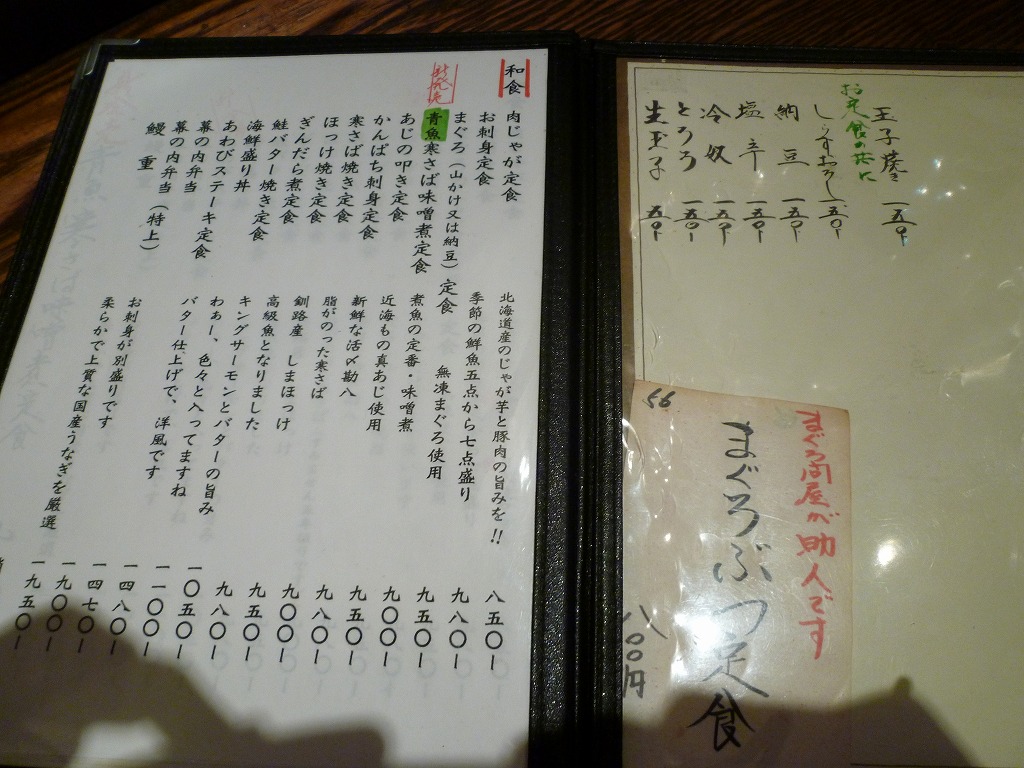 玉子焼き 一五〇-
お定食の共に
しらすおろし 一五〇-
納豆 一五〇-
塩辛 一五〇-
冷奴 一五〇-
とろろ 一五〇-
生玉子 五〇-
56
まぐろ問屋が助人です
まぐろぶつ定食
八〇〇円
和食
肉じゃが定食 北海道産のじゃが芋と豚肉の旨みを!! 八五〇-
お刺身定食 季節の鮮魚五点から七点盛り 九八〇-
まぐろ(山かけ又は納豆)定食 無凍まぐろ使用 九五〇-
青魚寒さば味噌煮定食 煮魚の定番・味噌煮 九〇〇-
あじの叩き定食 近海もの真あじ使用 九五〇-
かんぱち刺身定食 新鮮な活〆勘八 九八〇-
寒さば焼き定食 脂がのった寒さば 九〇〇-
ほっけ焼き定食 釧路産 しまほっけ 九五〇-
ぎんだら煮定食 高級魚となりました 九八〇-
鮭バター焼き定食 キングサーモンとバターの旨み 一〇五〇-
海鮮盛り丼 わぁー、色々と入ってますね 一一〇〇-
あわびステーキ定食 バター仕上げで、洋風です 一四八〇-
幕の内弁当 一四七〇-
幕の内弁当 お刺身が別盛りです 一九〇〇-
鰻重(特上) 柔らかで上質な国産うなぎを厳選 一九五〇-